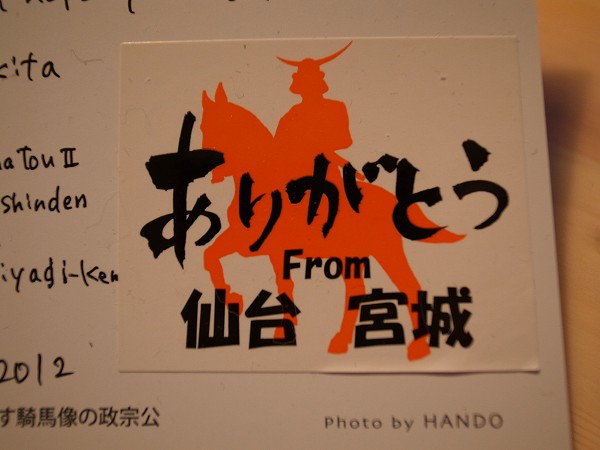 ありがとう
From
仙台 宮城
kita
II
shinden
iyagi-Ken
2012
す騎馬像の政宗公
Photo by HANDO